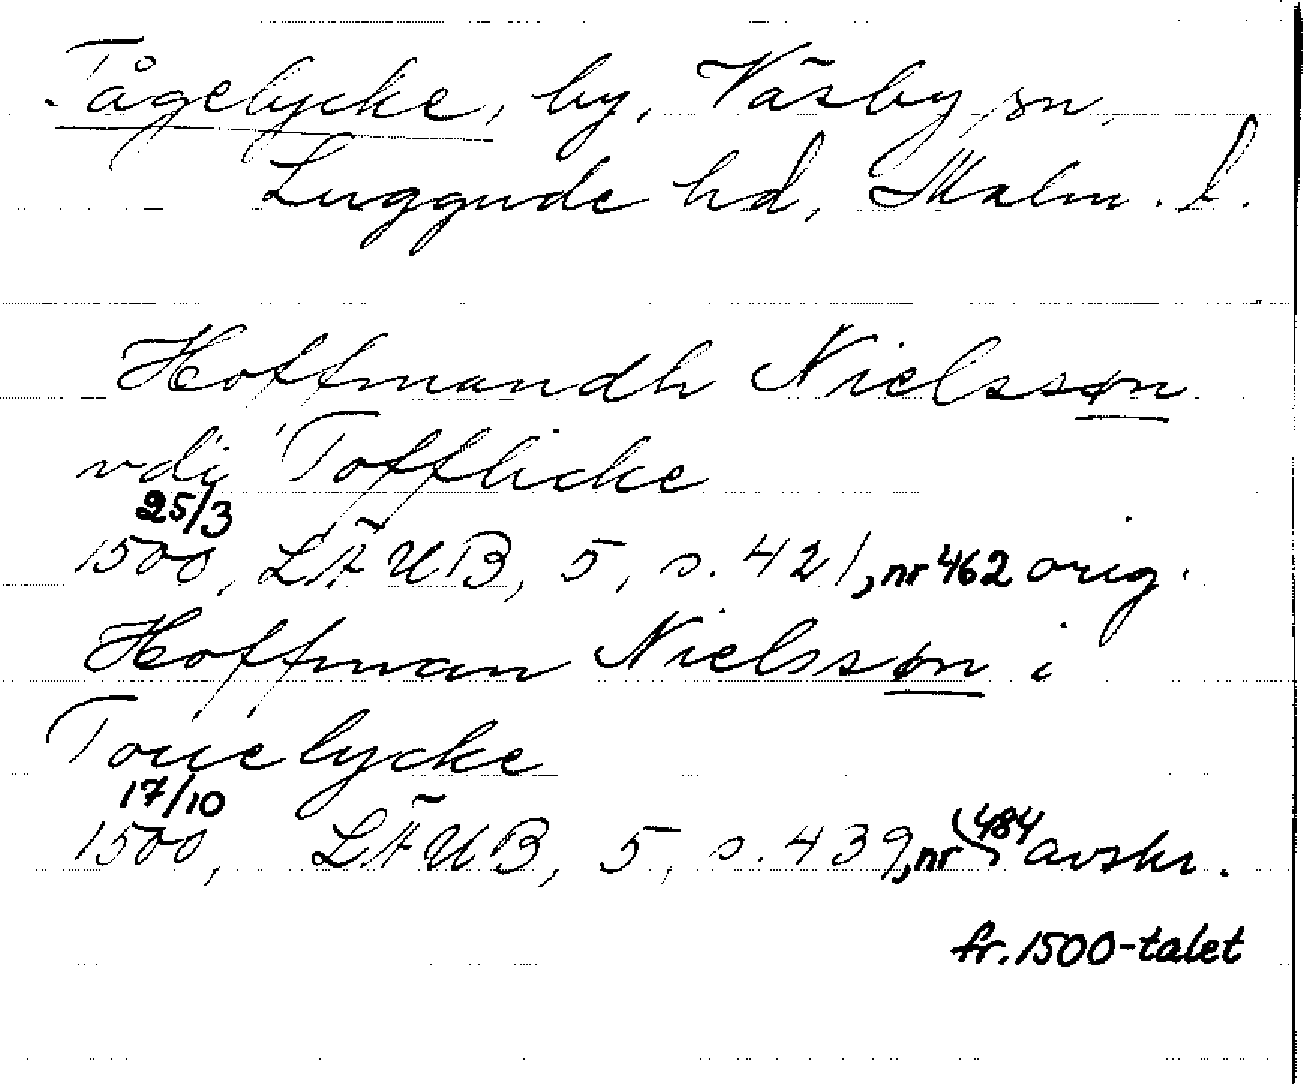 Tågelycke, by, Väsby sn,
Luggude hd, Malm. l.
Hoffmandh Nielssøn
vdij Tofflicke
25/3
1500, LÄUB, 5, s. 421, nr 462 orig.
Hoffman Nielssøn i
Touelycke
17/10
1500, LÄUB, 5, s. 439, nr 484 avskr.
fr. 1500-talet